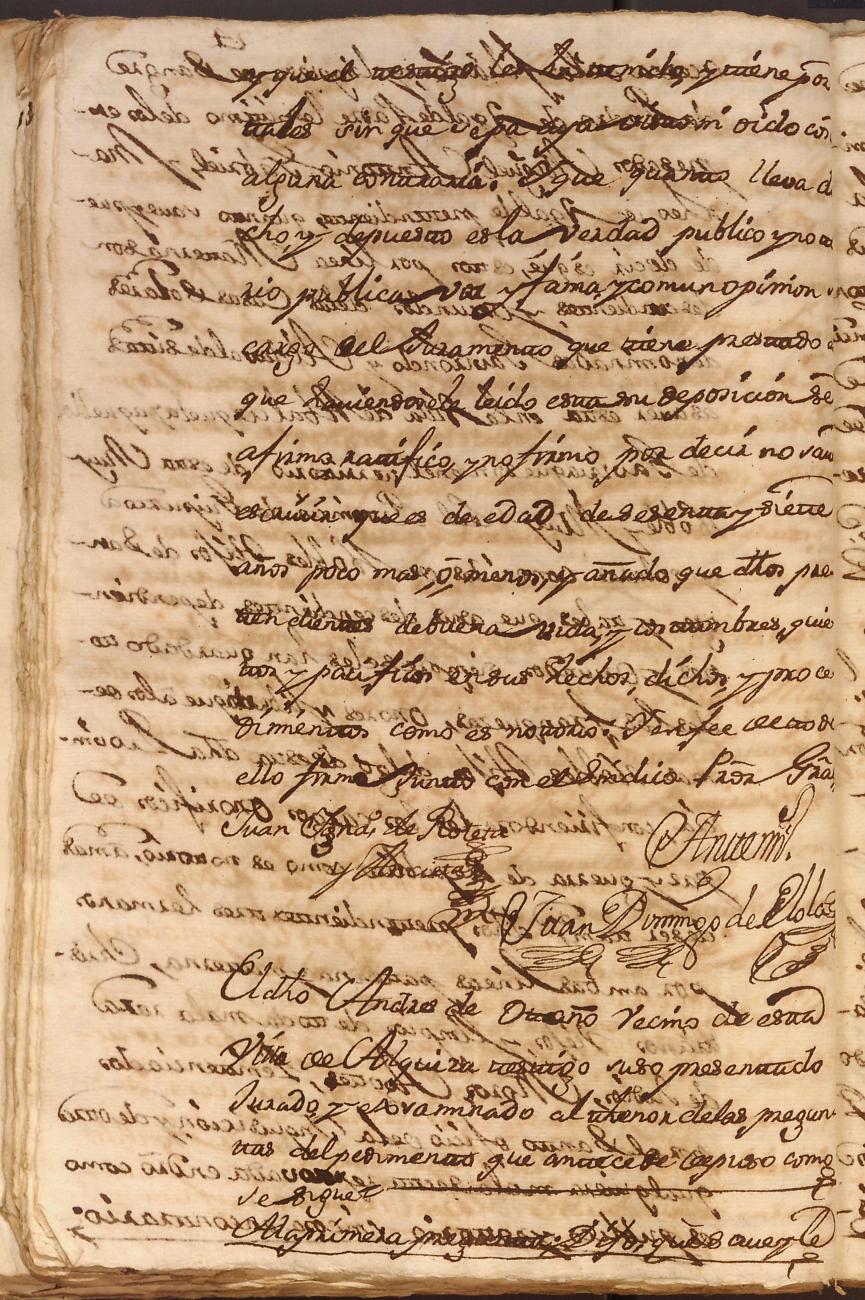 y que el testigo les ha tenido, y tiene por
tales sin que sepa cosa ni oido cosa
alguna contraria. Y que quanto lleva di
cho, y depuesto es la Verdad publico y noto
rio publica voz y fama y comun opinion
cargo del Juramento que tiene prestado
que haviendosele leido esta su deposicion se
afirmo ratifico, y no firmo por decir no sav
escriuir y que es de edad de sesenta y siette
años poco mas, o menos, y añado que dhos pre
tendientes de buena vida, y costumbres, quie
tos y pacificos en sus hechos, dichos, y proce
dimientos como es notorio: Y en fee de todo
ello firme Junto con el Sindico Pror Grãl
Juan Fernz. de Roleta
Antemi
Juan Domingo de Olola
El dho Andres de Otaño Vecino de esta
Villa de Alquiza testigo suso presentado
Jurado, y exsaminado al thenor delas pregun
tas del pedimento, que antecede depuso como
se sigue
Ala primera pregunta Dijo que save